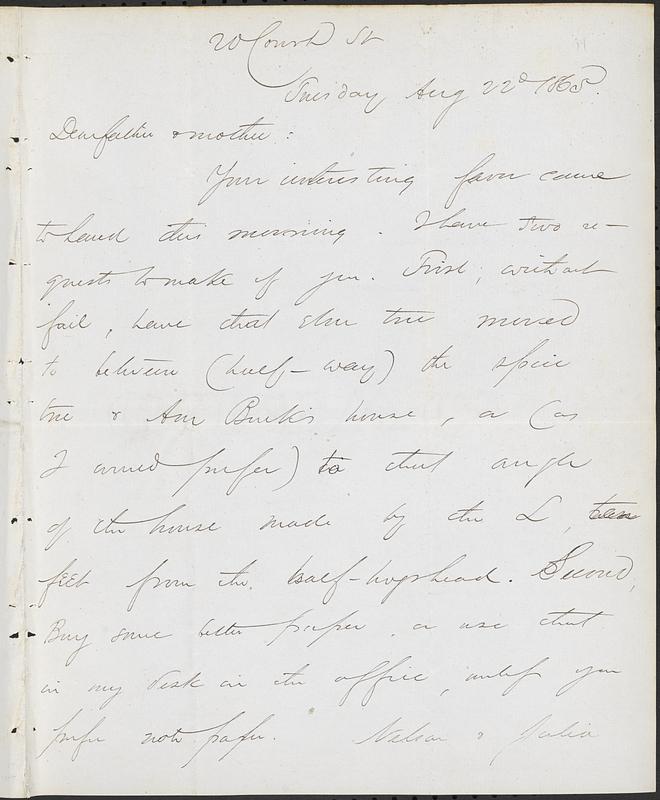 20 Court St
Tuesday Aug 22d 1865.
Dear father & mother :
Your interesting favor came
to hand this morning . I have two re-
quests to make of you. First, without
fail, have that Elm tree moved
to between (half-way) the spice
tree & Ann Burk's house, or (as
I would prefer) to that angle
of the house made by the L, ten
feet from the half-hogshead. Second,
Buy some better paper, or use that
in my desk in the office, unless you
prefer not paper. Nelson & Julia